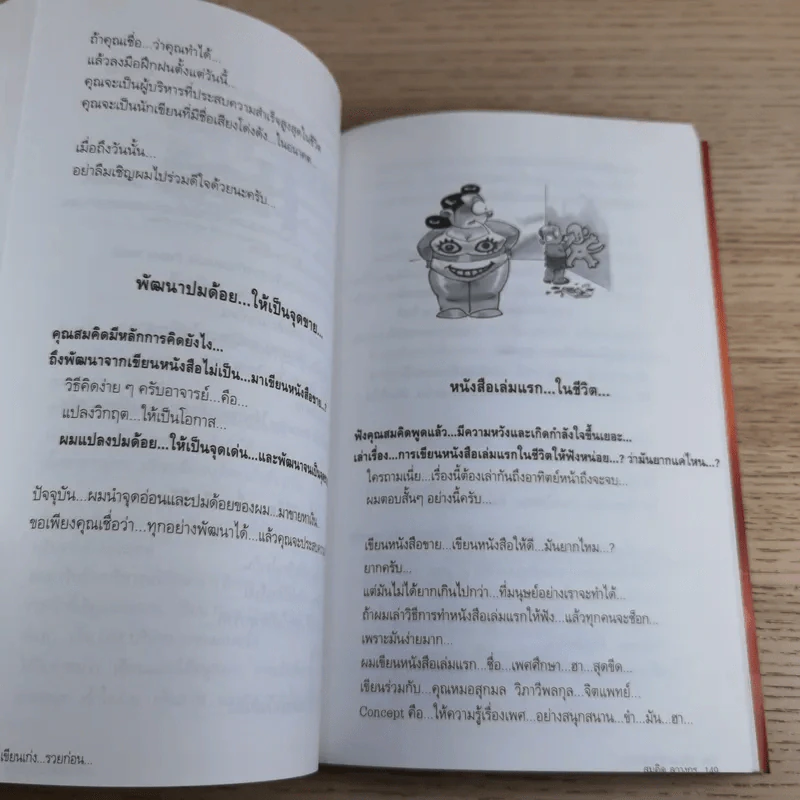 ถ้าคุณเชื่อ...ว่าคุณทำได้...
แล้วลงมือฝึกฝนตั้งแต่วันนี้...
คุณจะเป็นผู้บริหารที่ประสบความสำเร็จสูงสุดในชีวิต
คุณจะเป็นนักเขียนที่มีชื่อเสียงโด่งดัง...ในอนาคต
เมื่อถึงวันนั้น...
อย่าลืมเชิญผมไปร่วมดีใจด้วยนะครับ...
พัฒนาปมด้อย...ให้เป็นจุดขาย...
คุณสมคิดมีหลักการคิดยังไง...
ถึงพัฒนาจากเขียนหนังสือไม่เป็น...มาเขียนหนังสือขาย...?
วิธีคิดง่าย ๆ ครับอาจารย์...คือ...
แปลงวิกฤต...ให้เป็นโอกาส...
ผมแปลงปมด้อย...ให้เป็นจุดเด่น...และพัฒนาจนเป็น
ปัจจุบัน...ผมนำจุดอ่อนและปมด้อยของผม...มาขายหาเงิน
ขอเพียงคุณเชื่อว่า...ทุกอย่างพัฒนาได้...แล้วคุณจะประสบความ
เขียนเก่ง...รวยก่อน...
หนังสือเล่มแรก...ในชีวิต...
ฟังคุณสมคิดพูดแล้ว...มีความหวังและเกิดกำลังใจขึ้นเยอะ...
เล่าเรื่อง...การเขียนหนังสือเล่มแรกในชีวิตให้ฟังหน่อย...? ว่ามันยากแค่ไหน...?
ใครถามเนี่ย...เรื่องนี้ต้องเล่ากันถึงอาทิตย์หน้าถึงจะจบ...
ผมตอบสั้นๆ อย่างนี้ครับ...
เขียนหนังสือขาย...เขียนหนังสือให้ดี...มันยากไหม...?
ยากครับ...
แต่มันไม่ได้ยากเกินไปกว่า...ที่มนุษย์อย่างเราจะทำได้...
ถ้าผมเล่าวิธีการทำหนังสือเล่มแรกให้ฟัง...แล้วทุกคนจะช็อก...
เพราะมันง่ายมาก...
ผมเขียนหนังสือเล่มแรก...ชื่อ...เพศศึกษา...ฮา...สุดขีด...
เขียนร่วมกับ...คุณหมอสุกมล วิภาวีพลกุล...จิตแพทย์...
Concept คือ...ให้ความรู้เรื่องเพศ...อย่างสนุกสนาน...ขำ...มัน...ฮา...